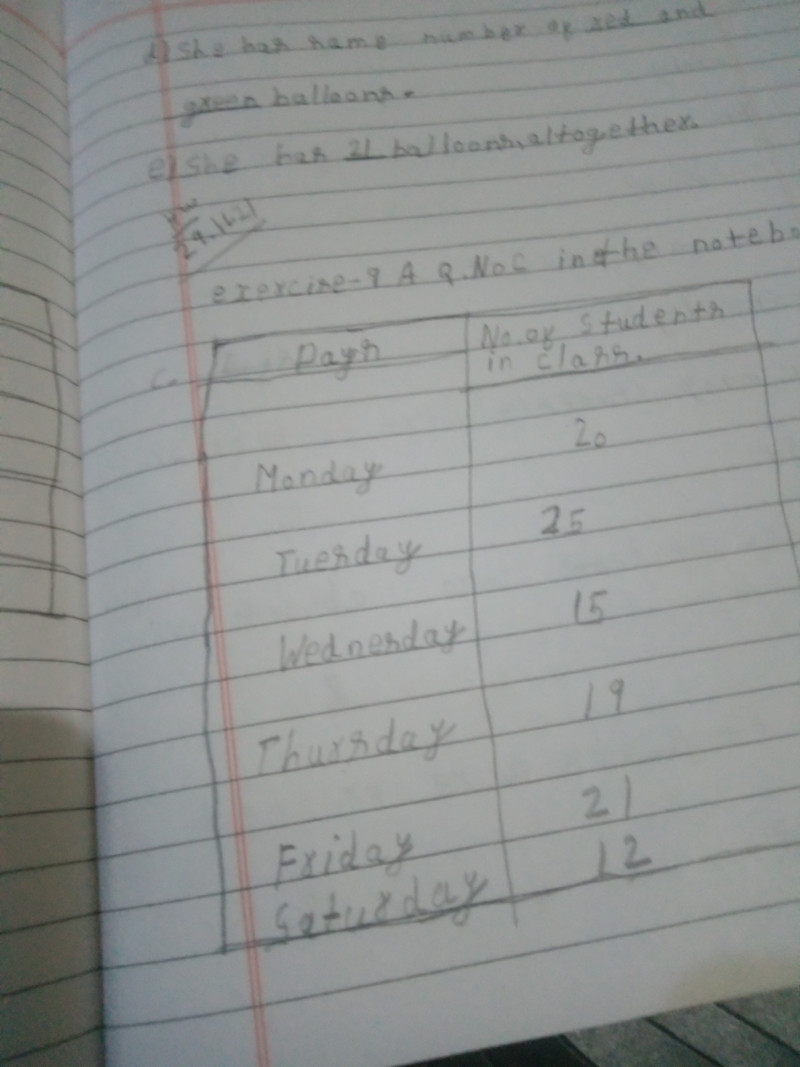 d) She has same number of red and
green balloons.
e) She has 21 balloons, altogether.
HW
exercise-9 A Q.No C in the
C.
Days
No. of Students
in Class.
Monday 20
Tuesday 25
Wednesday 15
Thursday 19
Friday 21
Saturday 12